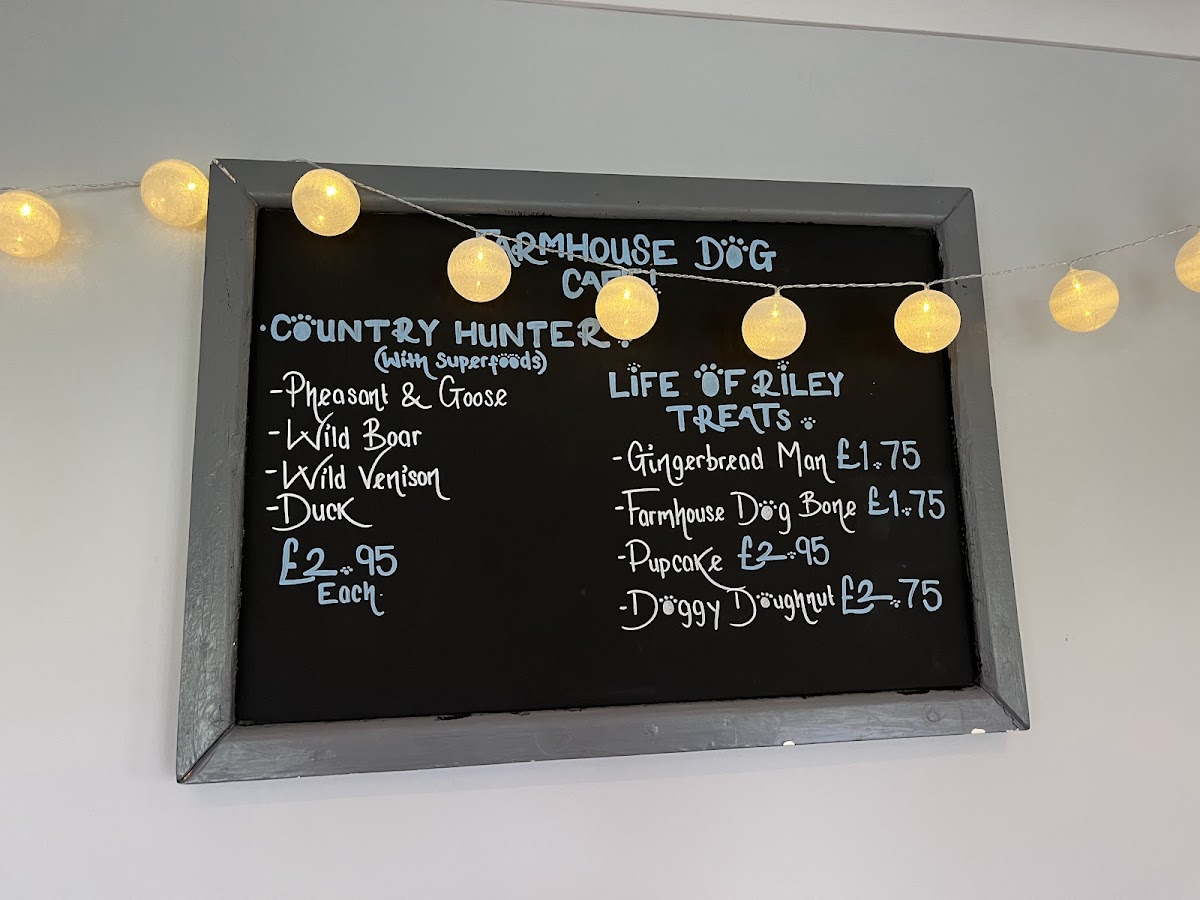 FARMHOUSE DOG
COUNTRY HUNTER
(With Superfoods)
-Pheasant & Goose
-Wild Boar
-Wild Venison
-Duck
£2.95
Each
LIFE OF RILEY
TREATS
-Gingerbread Man £1.75
-Farmhouse Dog Bone £1.75
-Pupcake £2.95
-Doggy Doughnut £2.75